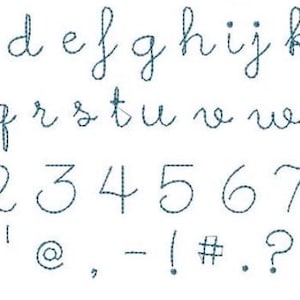 d e f g h i j k
q r s t u v w
2 3 4 5 6 7
' @ , - ! # . ?